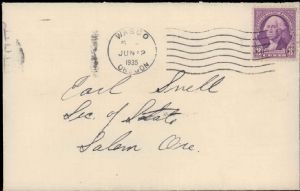 WASCO
JUN 12
1935
OREGON
3 CENTS 3
Earl Snell
Sec. of State
Salem Ore.